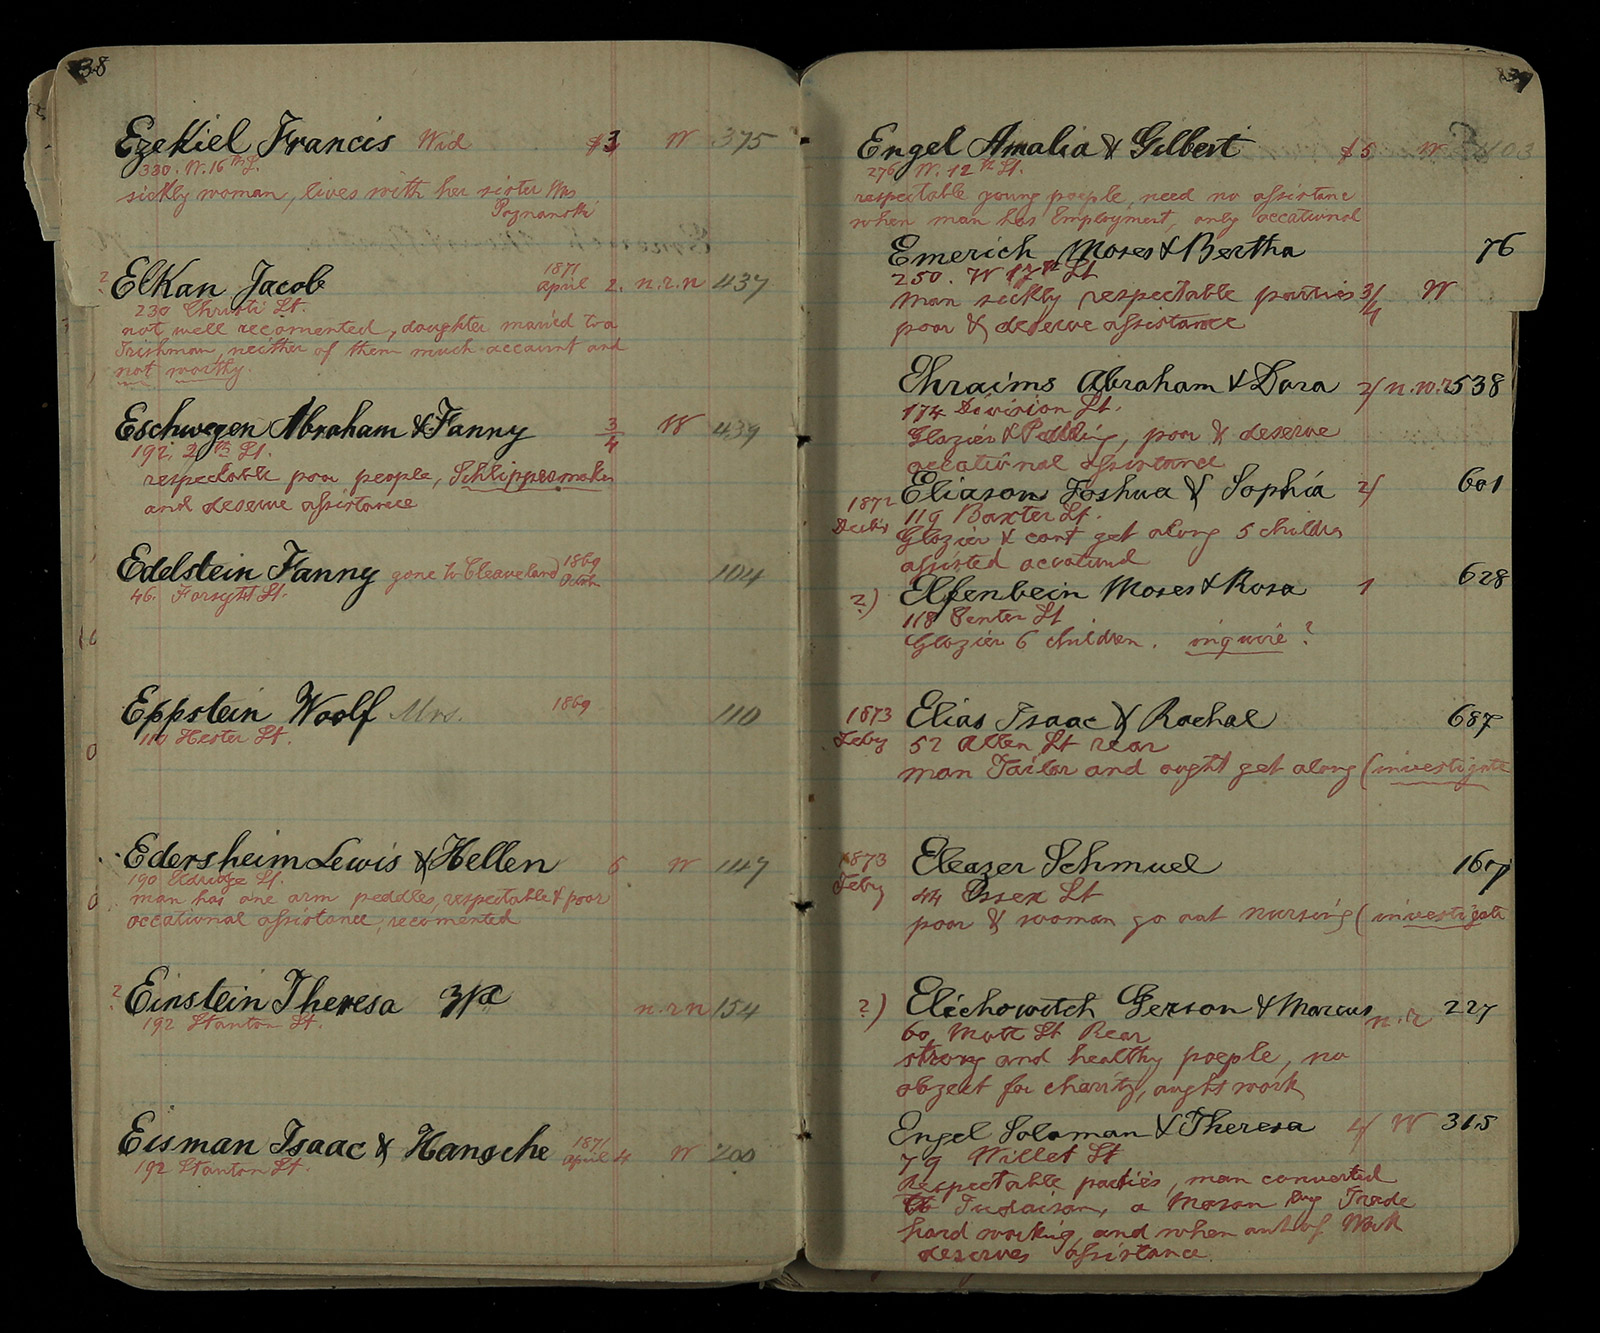 38
Ezekiel Francis Wid $3 W 375
330. W. 16th St.
sickly woman, lives with her sister Mrs
Poznanski
? Elkan Jacob 1871 april 2. n.r.n 437
230 Christi St.
not well recomented, doughter maried to a
Irishman, neither of them much account and
not worthy.
Eschwegen Abraham & Fanny 3/4 W 439
192. 2th St.
respectable poor people, Schlippermaker
and deserve assistance
Edelstein Fanny gone to Cleaveland 1869 104
46. Forsyth St.
Eppstein Woolf Mrs. 1869 110
110 Hester St.
Edersheim Lewis & Hellen 6 W 147
190 Eldridge St.
man has one arm peddles, respectable & poor
occational assistance, recomented
? Einstein Theresa n.r.n 154
192 Stanton St.
Eisman Isaac & Hansche 1871 april 4 W 200
192 Stanton St.
Engel Amalia & Gilbert $5 W 403
276 W. 12th St.
respectable young people, need no assistanc
when man has Employment, only occational
Emerich Moses & Bertha 76
250. W 17th St
Man sickly respectable parties 3/4 W
poor & deserve assistance
Ehraims Abraham & Dora 2/ n.w.r 538
174 Division St.
Glazier & Pedling, poor & deserve
occational assistance
1872 Decbr Eliason Joshua & Sophia 2/ 601
119 Baxter St.
Glazier & cant get along 5 childre
assisted occational
?) Elfenbein Moses & Rosa 1 628
118 Center St
Glazier 6 children. inquire?
1873 Feby Elias Isaac & Rachal 687
52 Allen St rear
man Tailor and ought get along (investigate
1873 Feby Eleazer Schmuel 167
44 Essex St
poor & woman go out nursing (investigate
?) Elichowitch Gerson & Marcus n.r 227
60 Mott St Rear
strong and healthy poeple, no
object for charity, aught work
Engel Soloman & Theresa 4/ W 315
79 Willet St
Respectable parties, man converted
to Judaism, a Mason by Trade
hard working, and when out of Work
deserves assistance.